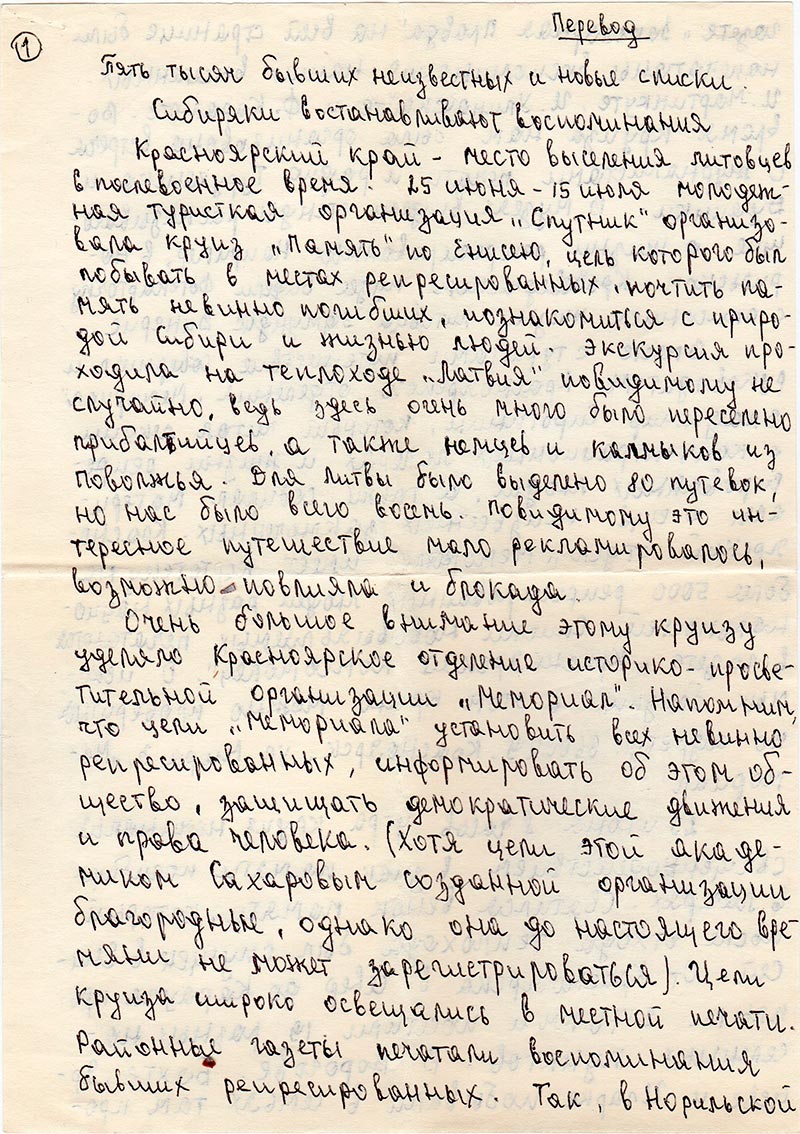 Перевод
1
Пять тысяч бывших неизвестных и новые списки.
Сибиряки востанавливают воспоминания
Красноярский край – место выселения литовцев
в послевоенное время. 25 июня – 15 июля молодеж-
ная туристкая организация „Спутник" организо-
вала круиз „Память" по Енисею, цель которого был
побывать в местах репресированных, почтить па-
мять невинно погибших, познакомиться с приро-
дой Сибири и жизнью людей. Экскурсия про-
ходила на теплоходе „Латвия" повидимому не
случайно, ведь здесь очень много было переселено
прибалтийцев, а также немцев и калмыков из
Поволжья. Для Литвы было выделено 80 путевок,
но нас было всего восемь. Повидимому это ин-
тересное путешествие мало рекламировалось,
возможно повлияла и блокада.
Очень большое внимание этому круизу
уделяло Красноярское отделение историко-просве-
тительной организации „Мемориал". Напомним,
что цели „Мемориала" установить всех невинно
репресированных, информировать об этом об-
щество, защищать демократические движения
и права человека. (Хотя цели этой акаде-
миком Сахаровым созданной организации
благородные, однако она до настоящего вре-
мяни не может зарегистрироваться). Цели
круиза широко освещались в местной печати.
Районные газеты печатали воспоминания
бывших репресированных. Так, в Норильской